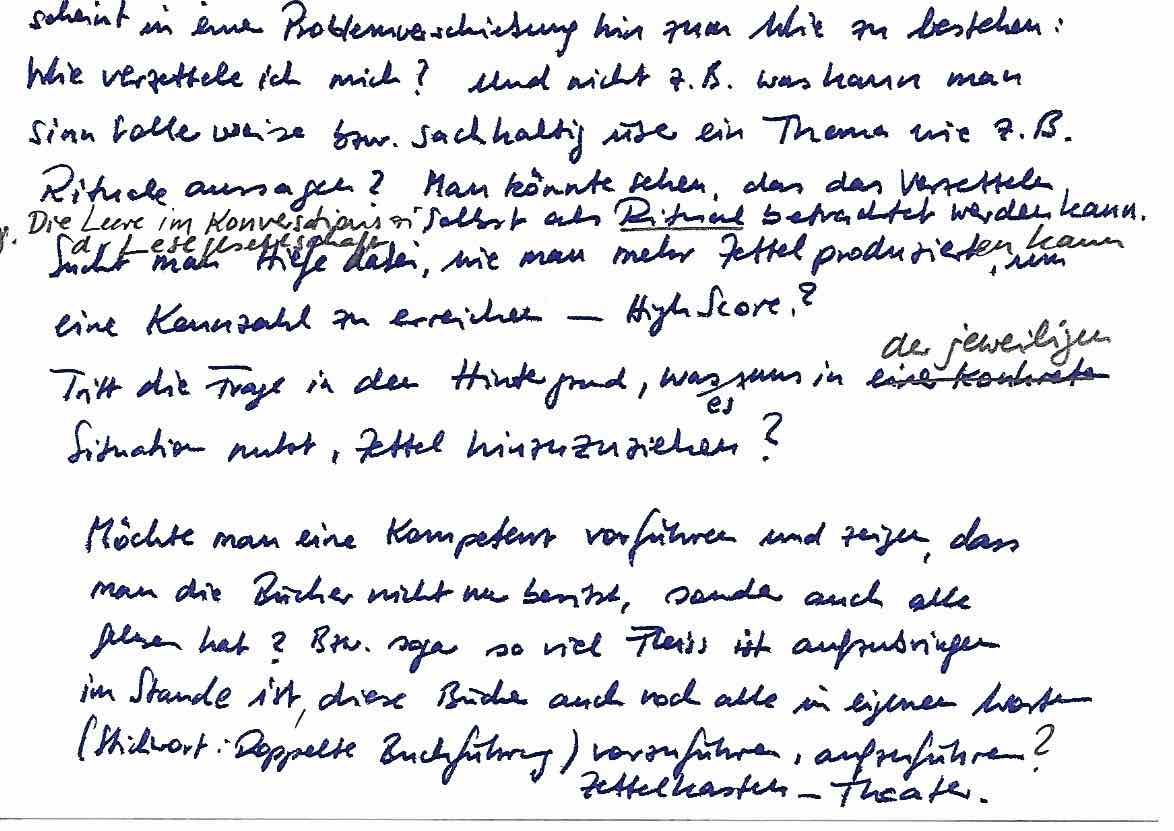 scheint in einer Problemverschiebung hin zum Wie zu bestehen:
Wie verzettele ich mich? Und nicht z.B. was kann man
sinnvollerweise bzw. sachhaltig über ein Thema wie z.B.
Rituale aussagen? Man könnte sehen, das das Verzetteln
Die Leere im Konversations
selbst als Ritual betrachtet werden kann.
d. Lesegesellschaft
Sucht man Hilfe dabei, wie man mehr Zettel produzieren kann, um
eine Kennzahl zu erreichen — High Score?
der jeweiligen
Tritt die Frage in den Hintergrund, was uns in einer konkreten
es
Situation nutzt, Zettel hinzuzuziehen?
Möchte man eine Kompetenz vorführen und zeigen, dass
man die Bücher nicht nur besitzt, sonder auch alle
gelesen hat? Bzw. sogar so viel Fleiss ist aufzubringen
im Stande ist, diese Bücher auch noch alle in eigenen Worten
(Stichwort: Doppelte Buchführung) vorzuführen, aufzuführen?
Zettelkasten — Theater.